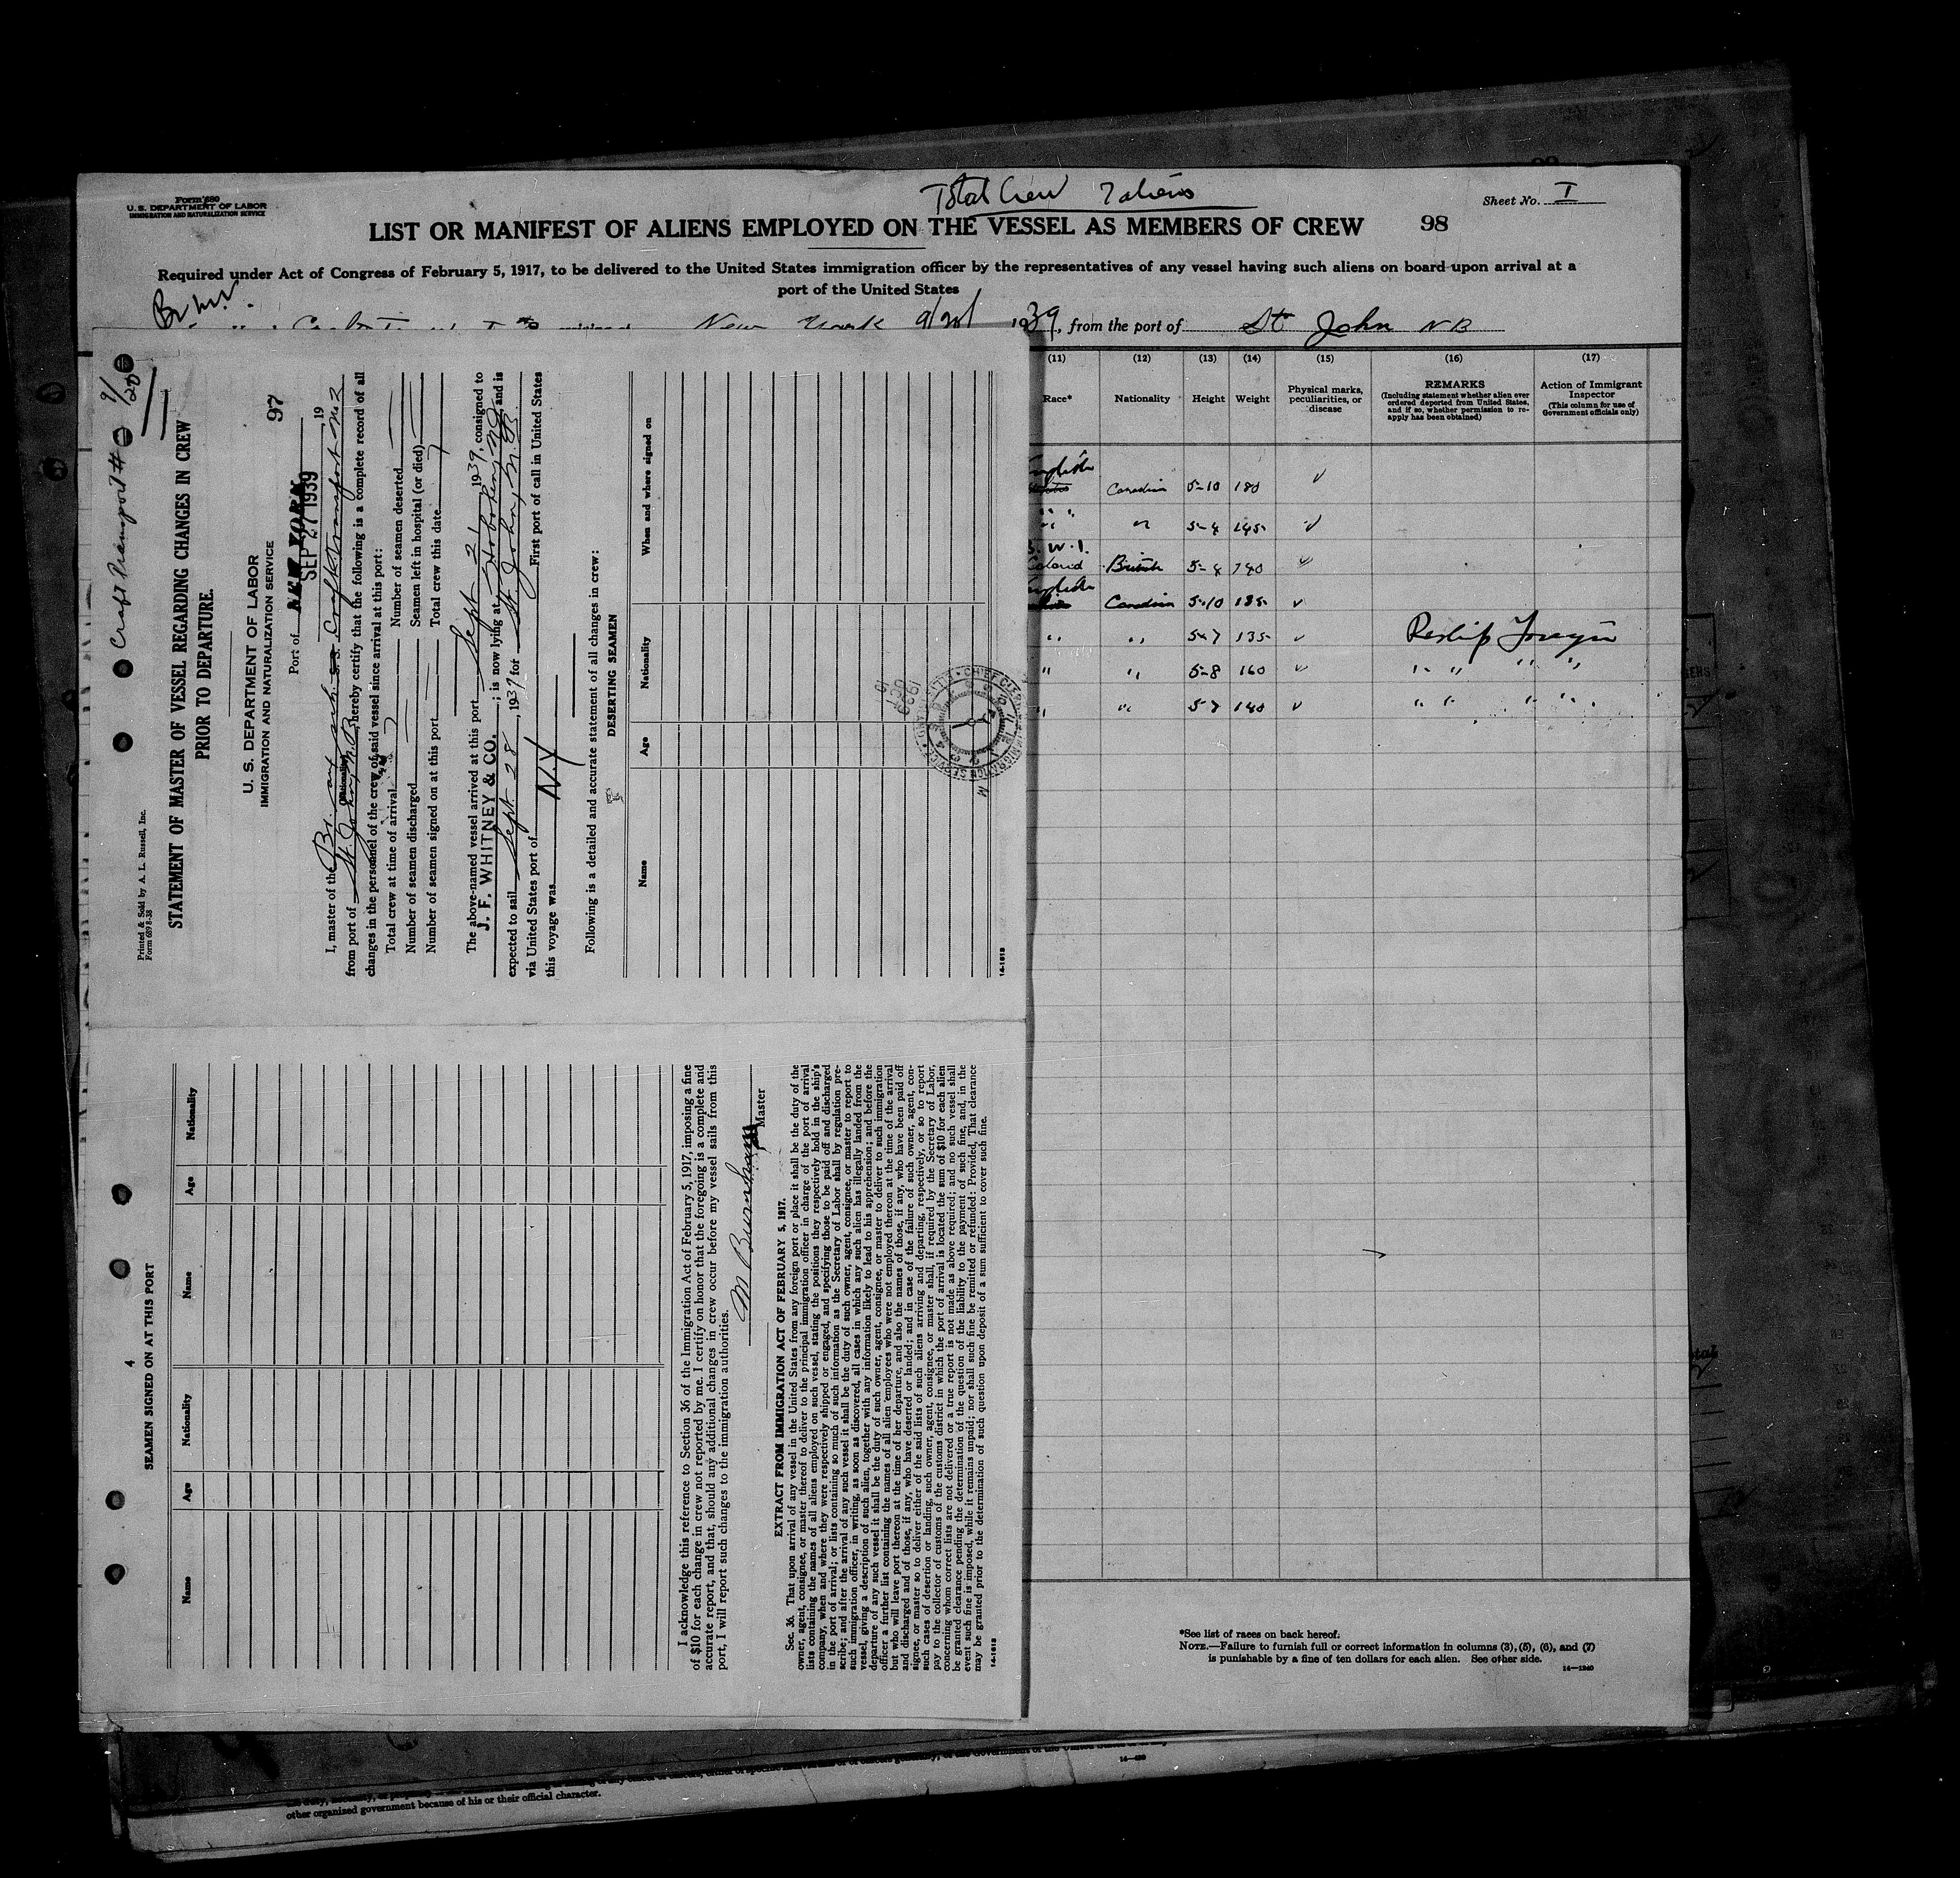 Form 680
U. S. DEPARTMENT OF LABOR
IMMIGRATION AND NATURALIZATION SERVICE
Total Crew 7 aliens
Sheet No. I
LIST OR MANIFEST OF ALIENS EMPLOYED ON THE VESSEL AS MEMBERS OF CREW 98
Required under Act of Congress of February 5, 1917, to be delivered to the United States immigration officer by the representatives of any vessel having such aliens on board upon arrival at a
port of the United States
New York 1939, from the port of St John NB
(11) (12) (13) (14) (15) (16) (17)
Race* Nationality Height Weight Physical marks, peculiarities, or disease
REMARKS
(Including statement whether alien ever ordered deported from United States, and if so, whether permission to reapply has been obtained)
Action of Immigrant Inspector
(This column for use of Government officials only)
English
Canadian 5-10 180 ✓
" " " 5-4 145 ✓
B. W. I.
Colored British 5-4 140 ✓
English
Canadian 5-10 185 ✓
" " 5-7 135 ✓
" " 5-8 160 ✓ " " " "
" " 5-7 140 ✓ " " " "
*See list of races on back hereof.
NOTE.—Failure to furnish full or correct information in columns (3), (5), (6), and (7)
is punishable by a fine of ten dollars for each alien. See other side.
14—1240
Craft Transport #2
9/28
Printed & Sold by A. L. Russell, Inc.
Form 689 8-38
STATEMENT OF MASTER OF VESSEL REGARDING CHANGES IN CREW
PRIOR TO DEPARTURE.
97
U. S. DEPARTMENT OF LABOR
IMMIGRATION AND NATURALIZATION SERVICE
Port of NEW YORK
SEP 27 1939 19
I, master of the Br. S. S. Craft Transport No 2
(Nationality)
from port of St. John, N.B., hereby certify that the following is a complete record of all
changes in the personnel of the crew of said vessel since arrival at this port:
Total crew at time of arrival 7 Number of seamen deserted
Number of seamen discharged Seamen left in hospital (or died)
Number of seamen signed on at this port Total crew this date 7
The above-named vessel arrived at this port Sept 21, 1939, consigned to
J. F. WHITNEY & CO. ; is now lying at Hoboken, NJ and is
expected to sail Sept 28, 1939 for St. John, N.B.
via United States port of First port of call in United States
this voyage was N.Y
Following is a detailed and accurate statement of all changes in crew:
DESERTING SEAMEN
Name Age Nationality When and where signed on
14-1618
4
SEAMEN SIGNED ON AT THIS PORT
Name Age Nationality Name Age Nationality
I acknowledge this reference to Section 36 of the Immigration Act of February 5, 1917, imposing a fine
of $10 for each change in crew not reported by me. I certify on honor that the foregoing is a complete and
accurate report, and that, should any additional changes in crew occur before my vessel sails from this
port, I will report such changes to the immigration authorities.
M Burnham
Master
EXTRACT FROM IMMIGRATION ACT OF FEBRUARY 5, 1917.
Sec. 36. That upon arrival of any vessel in the United States from any foreign port or place it shall be the duty of the
owner, agent, consignee, or master thereof to deliver to the principal immigration officer in charge of the port of arrival
lists containing the names of all aliens employed on such vessel, stating the positions they respectively hold in the ship's
company, when and where they were respectively shipped or engaged, and specifying those to be paid off and discharged
in the port of arrival; or lists containing so much of such information as the Secretary of Labor shall by regulation pre-
scribe; and after the arrival of any such vessel it shall be the duty of such owner, agent, consignee, or master to report to
such immigration officer, in writing, as soon as discovered, all cases in which any such alien has illegally landed from the
vessel, giving a description of such alien, together with any information likely to lead to his apprehension; and before the
departure of any such vessel it shall be the duty of such owner, agent, consignee, or master to deliver to such immigration
officer a further list containing the names of all alien employees who were not employed thereon at the time of the arrival
but who will leave port thereon at the time of her departure, and also the names of those, if any, who have been paid off
and discharged and of those, if any, who have deserted or landed; and in case of the failure of such owner, agent, con-
signee, or master so to deliver either of the said lists of such aliens arriving and departing, respectively, or so to report
such cases of desertion or landing, such owner, agent, consignee, or master shall, if required by the Secretary of Labor,
pay to the collector of customs of the customs district in which the port of arrival is located the sum of $10 for each alien
concerning whom correct lists are not delivered or a true report is not made as above required; and no such vessel shall
be granted clearance pending the determination of the question of the liability to the payment of such fine, and, in the
event such fine is imposed, while it remains unpaid; nor shall such fine be remitted or refunded: Provided, That clearance
may be granted prior to the determination of such question upon deposit of a sum sufficient to cover such fine.
14-1618
other organized government because of his or their official character.